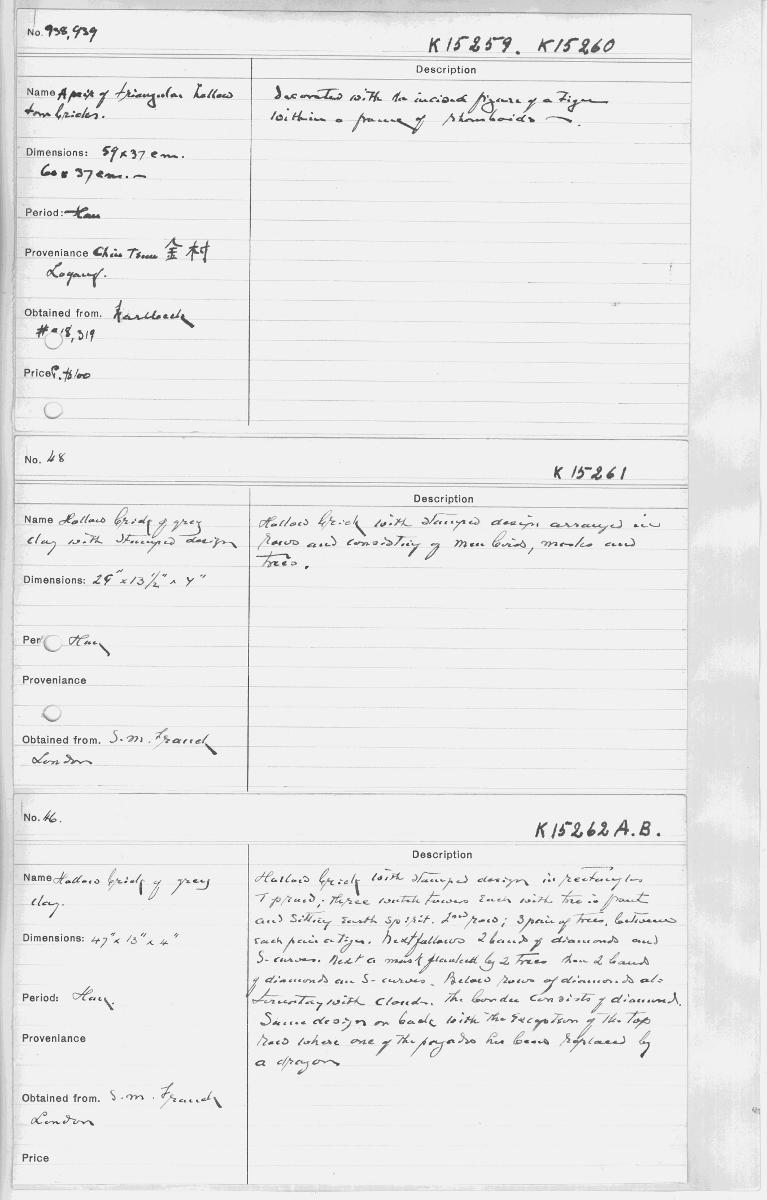 No. 938,939
K15259. K15260
Description
Name A pair of triangular hollow
tomb bricks.
Decorated with the incised figure of a Tiger
within a frame of rhomboids
Dimensions: 59 x 37 cm.
60 x 37 cm.
Period: Han
Proveniance Chin Tsun 金村
Loyang.
Obtained from. Karlbeck
#18,319
Price P. $100
No. 48
K 15261
Description
Name Hollow brick of grey
clay with stamped design
Hollow brick with stamped design arranged in
rows and consisting of men birds, masks and
trees.
Dimensions: 29" x 13 1/2" x 4"
Per Han
Proveniance
Obtained from. S. M. Franck
London
No. 46.
K15262 A. B.
Description
Name Hollow brick of grey
clay.
Hollow brick with stamped design in rectangles
Top row; three watch towers each with tree in front
and sitting earth spirit. 2nd row; 3 pair of trees, between
each pair a tiger. Next follows 2 bands of diamonds and
S-curves. Next a mask flanked by 2 trees then 2 bands
of diamonds and S-curves. Below rows of diamonds al-
ternating with clouds. The border consists of diamonds.
Same design on back with the exception of the top
row where one of the pagodas has been replaced by
a dragon
Dimensions: 47" x 13" x 4"
Period: Han.
Proveniance
Obtained from. S. M. Franck
London
Price